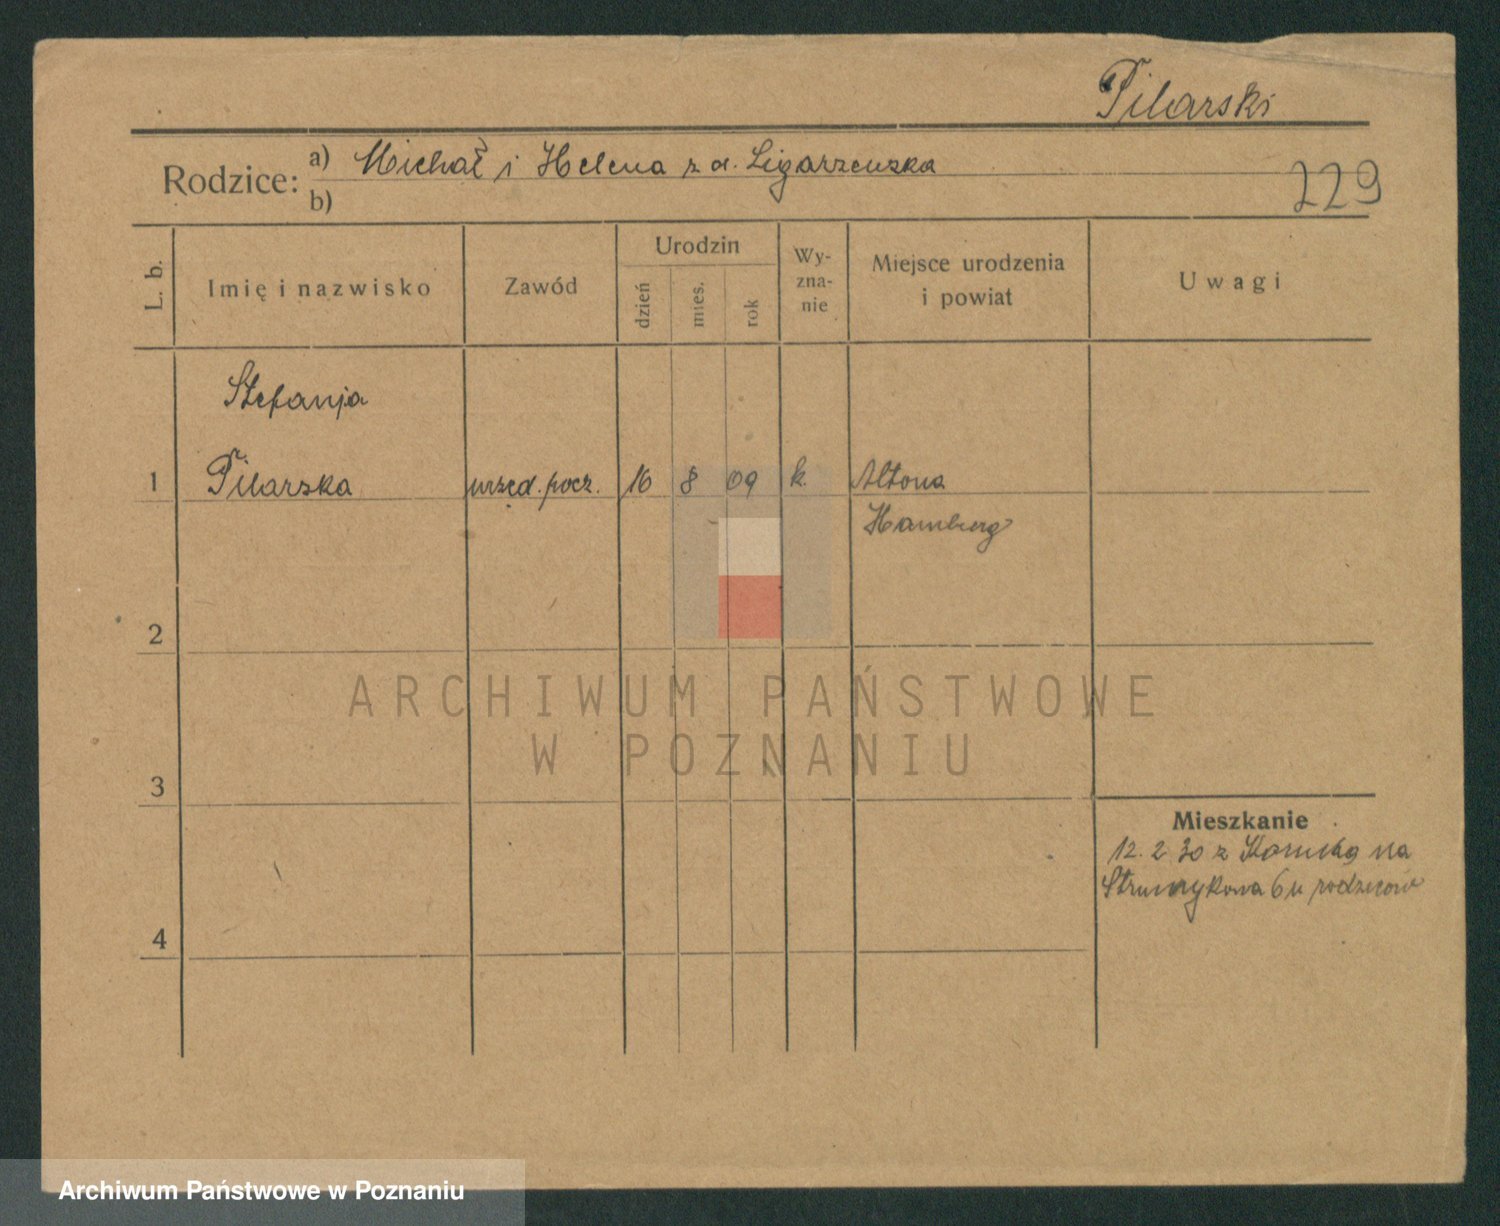 Pilarski
Rodzice:
a) Michał i Helena z d.
b)
229
L. b.
Imię i nazwisko
Zawód
Urodzin
dzień
mies.
rok
Wy-
zna-
nie
Miejsce urodzenia
i powiat
Uwagi
Stefanja
1 Pilarska urzęd. pocz. 16 8 09 k. Altona
Hamburg
2
3
4
Mieszkanie
12. 2 30 z na
Strumykowa 6 u rodziców
ARCHIWUM PAŃSTWOWE
W POZNANIU
Archiwum Państwowe w Poznaniu